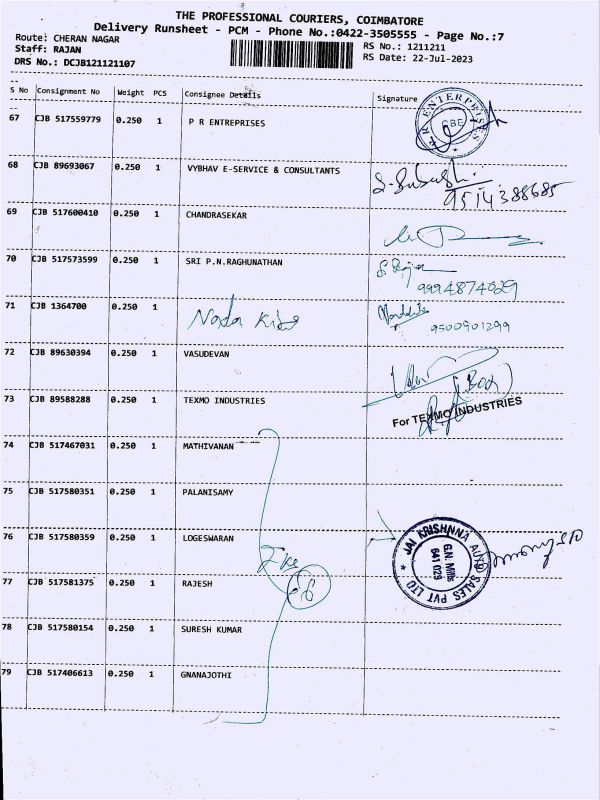 THE PROFESSIONAL COURIERS, COIMBATORE
Delivery Runsheet - PCM - Phone No.:0422-3505555 - Page No.:7
Route: CHERAN NAGAR RS No.: 1211211
Staff: RAJAN RS Date: 22-Jul-2023
DRS No.: DCJB121121107
S No Consignment No Weight PCS Consignee Details Signature
67 CJB 517559779 0.250 1 P R ENTREPRISES
R ENTERPRISES CBE
68 CJB 89693067 0.250 1 VYBHAV E-SERVICE & CONSULTANTS
9514388685
69 CJB 517600410 0.250 1 CHANDRASEKAR
70 CJB 517573599 0.250 1 SRI P.N.RAGHUNATHAN
9994874029
71 CJB 1364700 0.250 1
9500901299
72 CJB 89630394 0.250 1 VASUDEVAN
73 CJB 89588288 0.250 1 TEXMO INDUSTRIES
For TEXMO INDUSTRIES
74 CJB 517467031 0.250 1 MATHIVANAN
75 CJB 517580351 0.250 1 PALANISAMY
76 CJB 517580359 0.250 1 LOGESWARAN
JAI KRISHNNA AUTO SALES PVT LTD
G.N. Mills
641 029
77 CJB 517581375 0.250 1 RAJESH
78 CJB 517580154 0.250 1 SURESH KUMAR
79 CJB 517406613 0.250 1 GNANAJOTHI